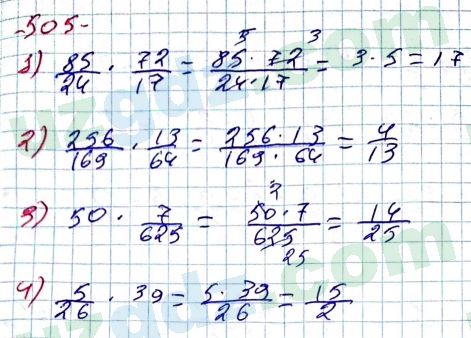 -505-
5 3
1) 85/24 · 72/17 = 85·72/24·17 = 3·5 = 17
2) 256/169 · 13/64 = 256·13/169·64 = 4/13
2
3) 50 · 7/625 = 50·7/625 = 14/25
25
4) 5/26 · 39 = 5·39/26 = 15/2